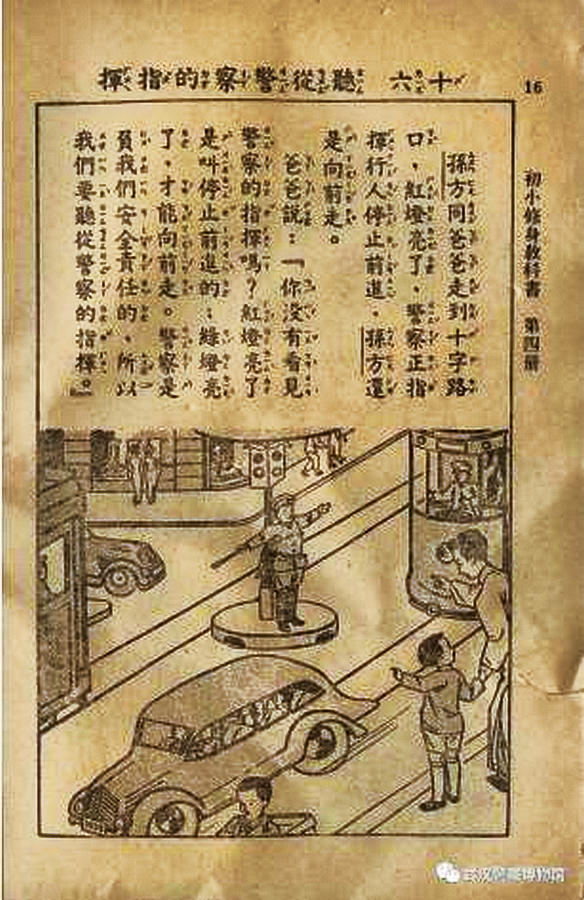 16
初小修身教科書 第四册
十六 聽從警察的指揮
孫方同爸爸走到十字路
口，紅燈亮了，警察正指
揮行人停止前進，孫方還
是向前走。
爸爸說：「你沒有看見
警察的指揮嗎？紅燈亮了
是叫停止前進的；綠燈亮
了，才能向前走。警察是
負我們安全責任的，所以
我們要聽從警察的指揮。」